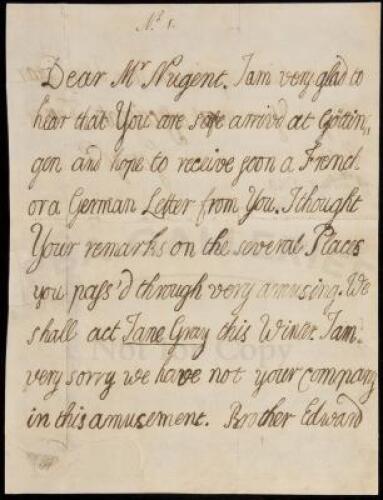 N.º 1.
Dear Mr Nugent. I am very glad to
hear that You are safe arriv'd at Göttin„
gen and hope to receive soon a French
or a German Letter from You. I thought
Your remarks on the several Places
you pass'd through very amusing. We
shall act Jane Gray this Winter. I am
very sorry we have not your company
in this amusement. Brother Edward